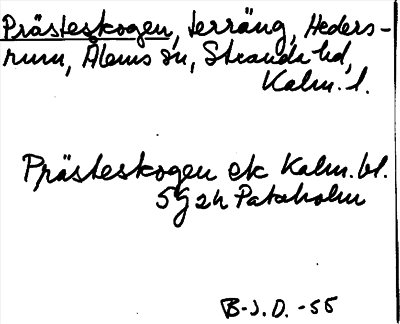 Prästeskogen, terräng, Heders-
rum, Ålems sn, Stranda hd,
Kalm. l.
Prästeskogen ek Kalm. bl.
5g2h Pataholm
B-J.D. -55